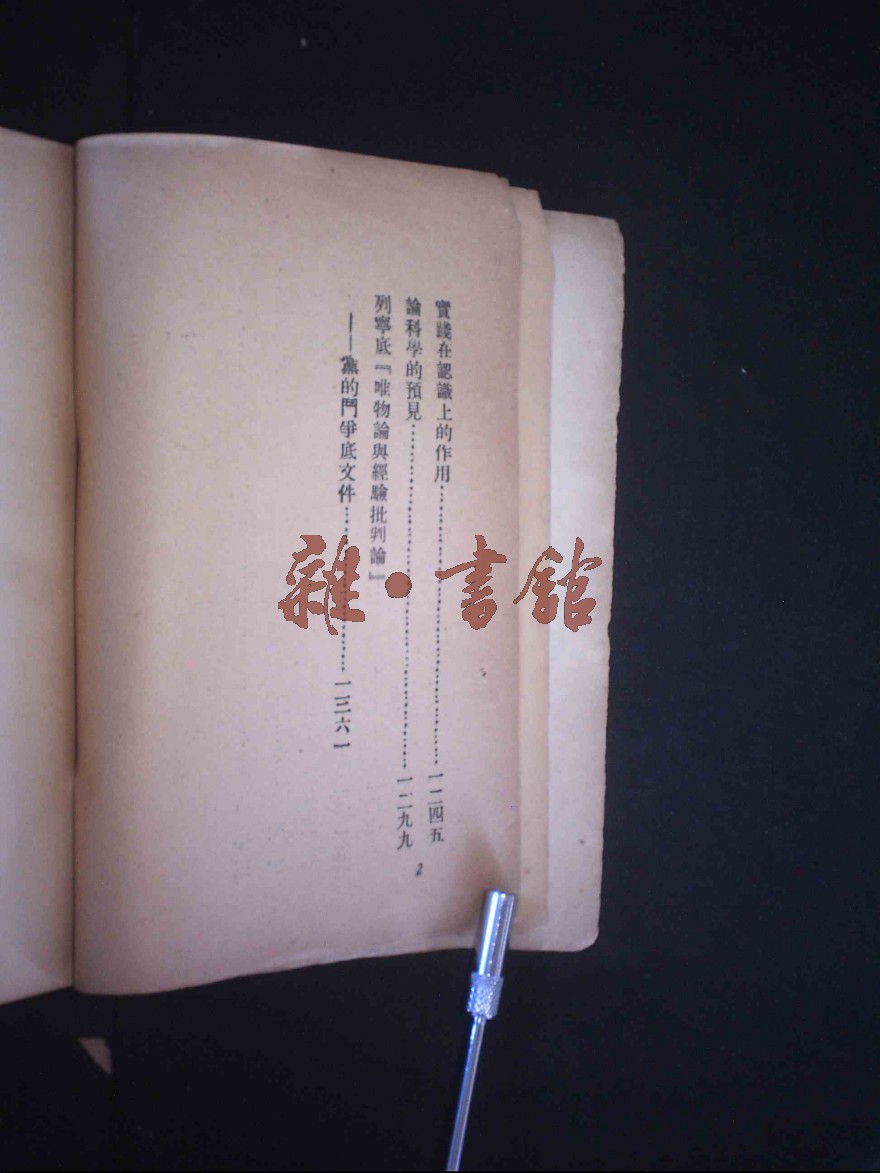 實踐在認識上的作用……一二四五
論科學的預見……一二九九
列寧底『唯物論與經驗批判論』
——黨的鬥爭底文件……一三六一
2
雜·書館